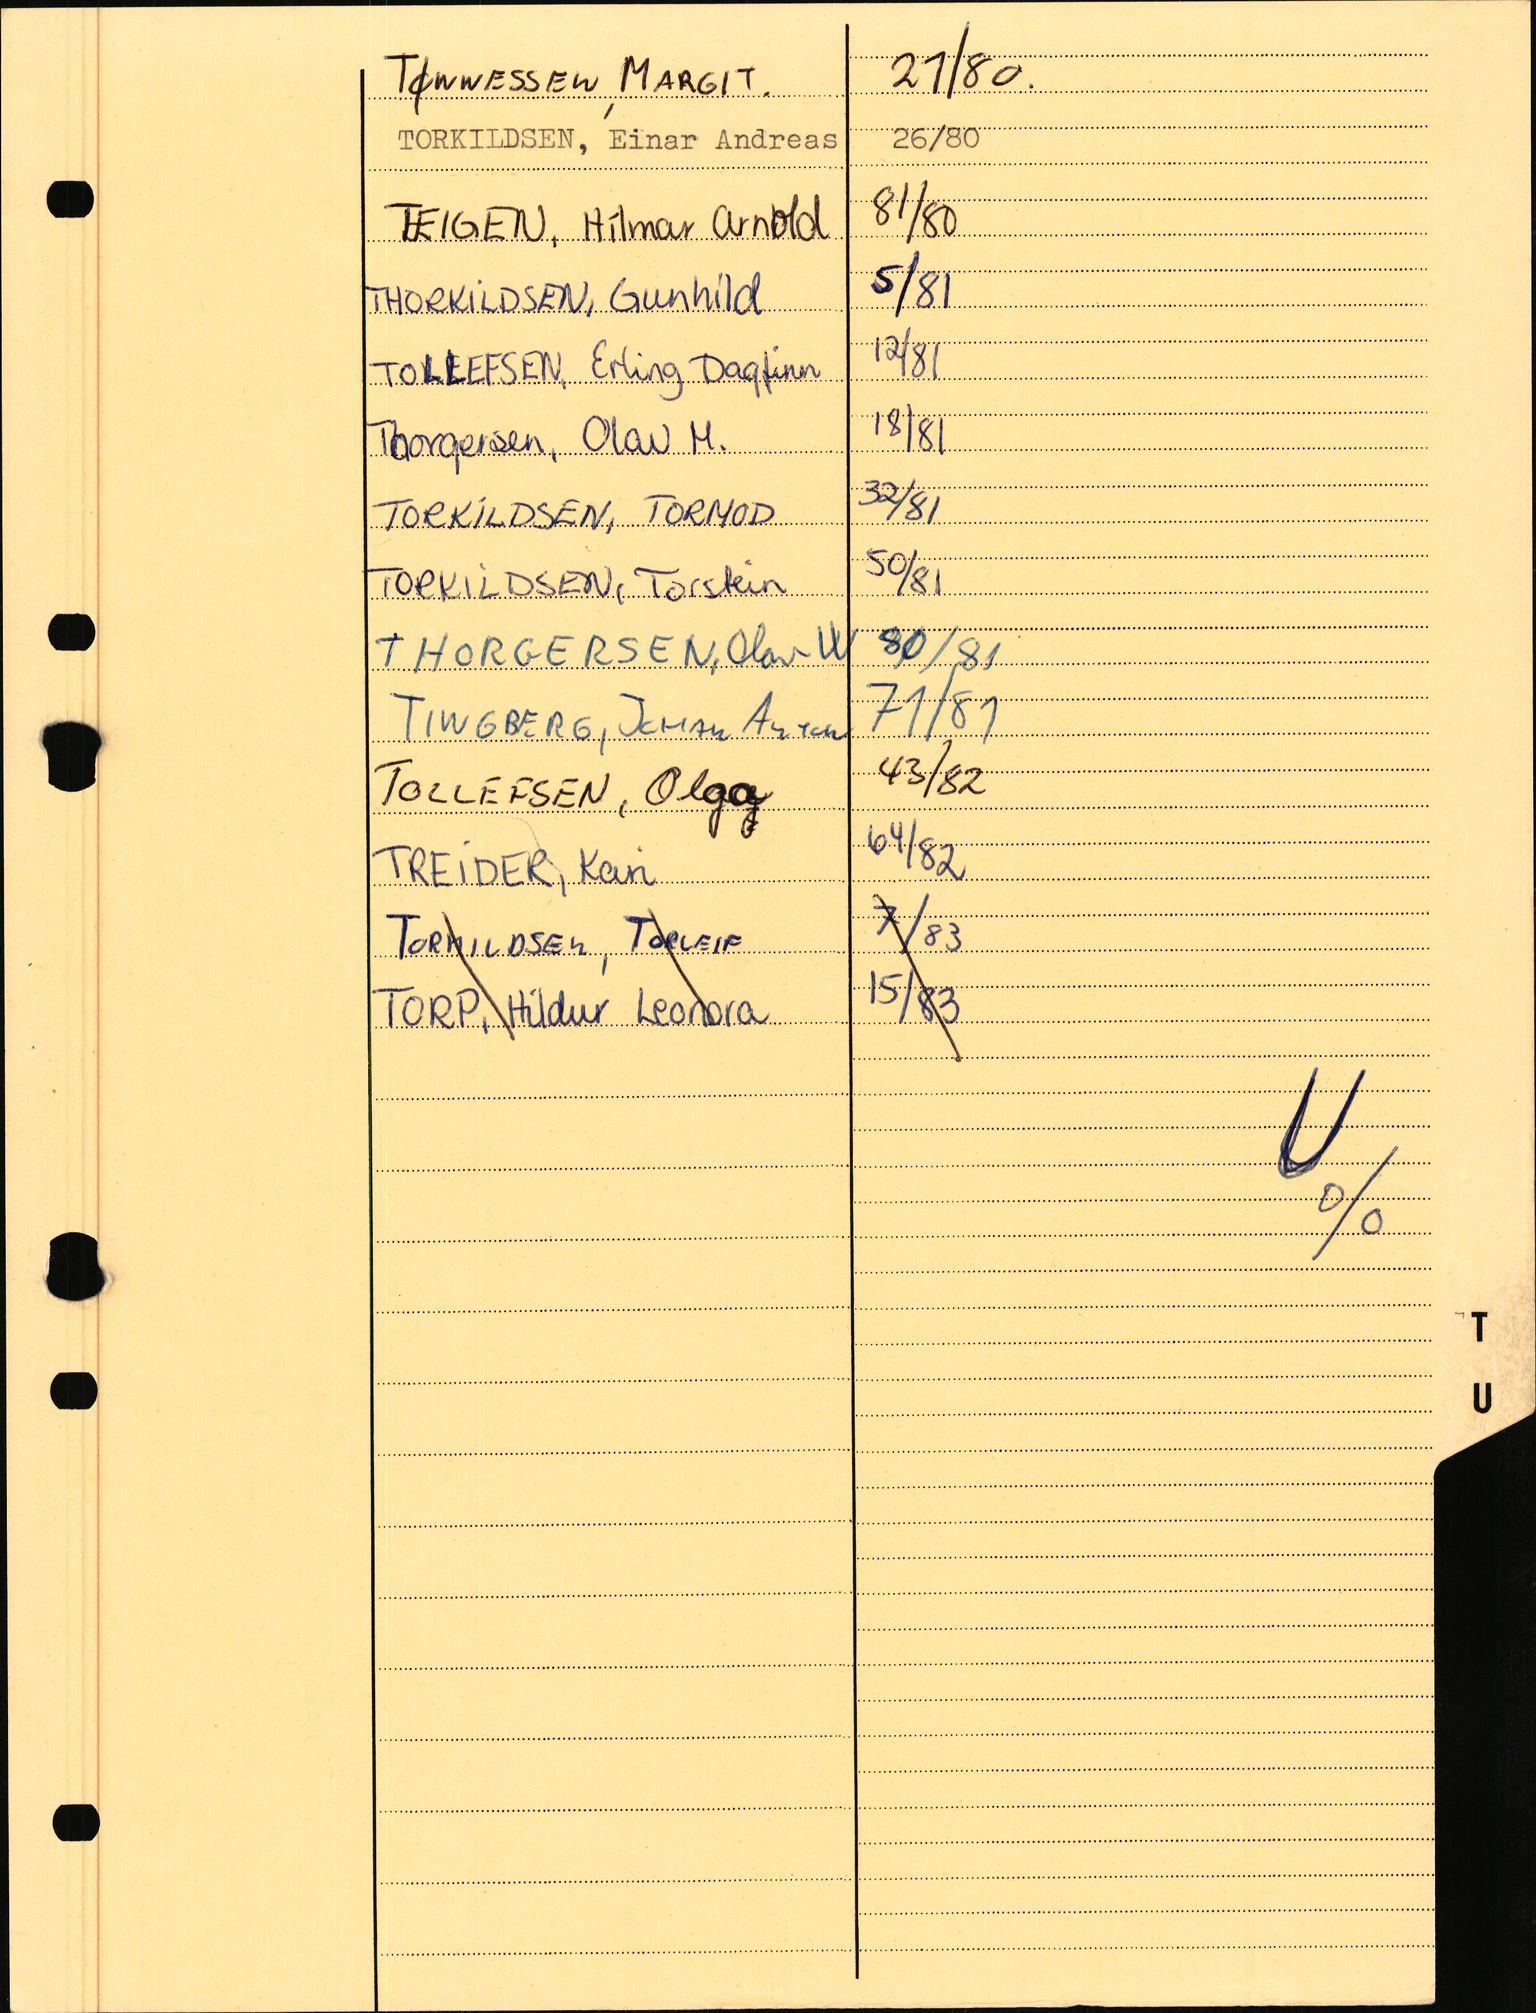 TØNNESSEN, MARGIT. 21/80.
TORKILDSEN, Einar Andreas 26/80
TEIGEN, Hilmar Arnold 81/80
THORKILDSEN, Gunhild 5/81
TOLLEFSEN, Erling Dagfinn 12/81
Thorgersen, Olav M. 18/81
TORKILDSEN, TORMOD 32/81
TORKILDSEN, Torstein 50/81
THORGERSEN, Olav W 80/81
TINGBERG, JOHAN ANTON 71/81
TOLLEFSEN, Olga 43/82
TREIDER, Kari 64/82
TORKILDSEN, TORLEIF 7/83
TORP, Hildur Leonora 15/83
U
0/0
T
U